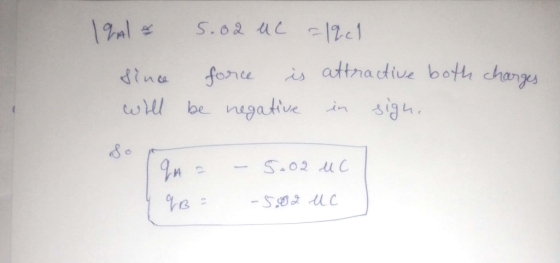 |qA| ≅ 5.02 uC = |qC|
Since force is attractive both charges
will be negative in sign.
So
qA = - 5.02 uC
qB = -5.02 uC